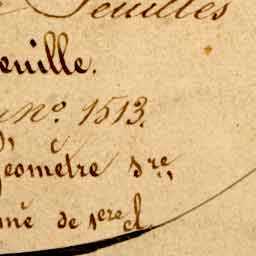 Feuilles
euille.
No. 1513.
Géomètre sre
mé de 1ere cl.